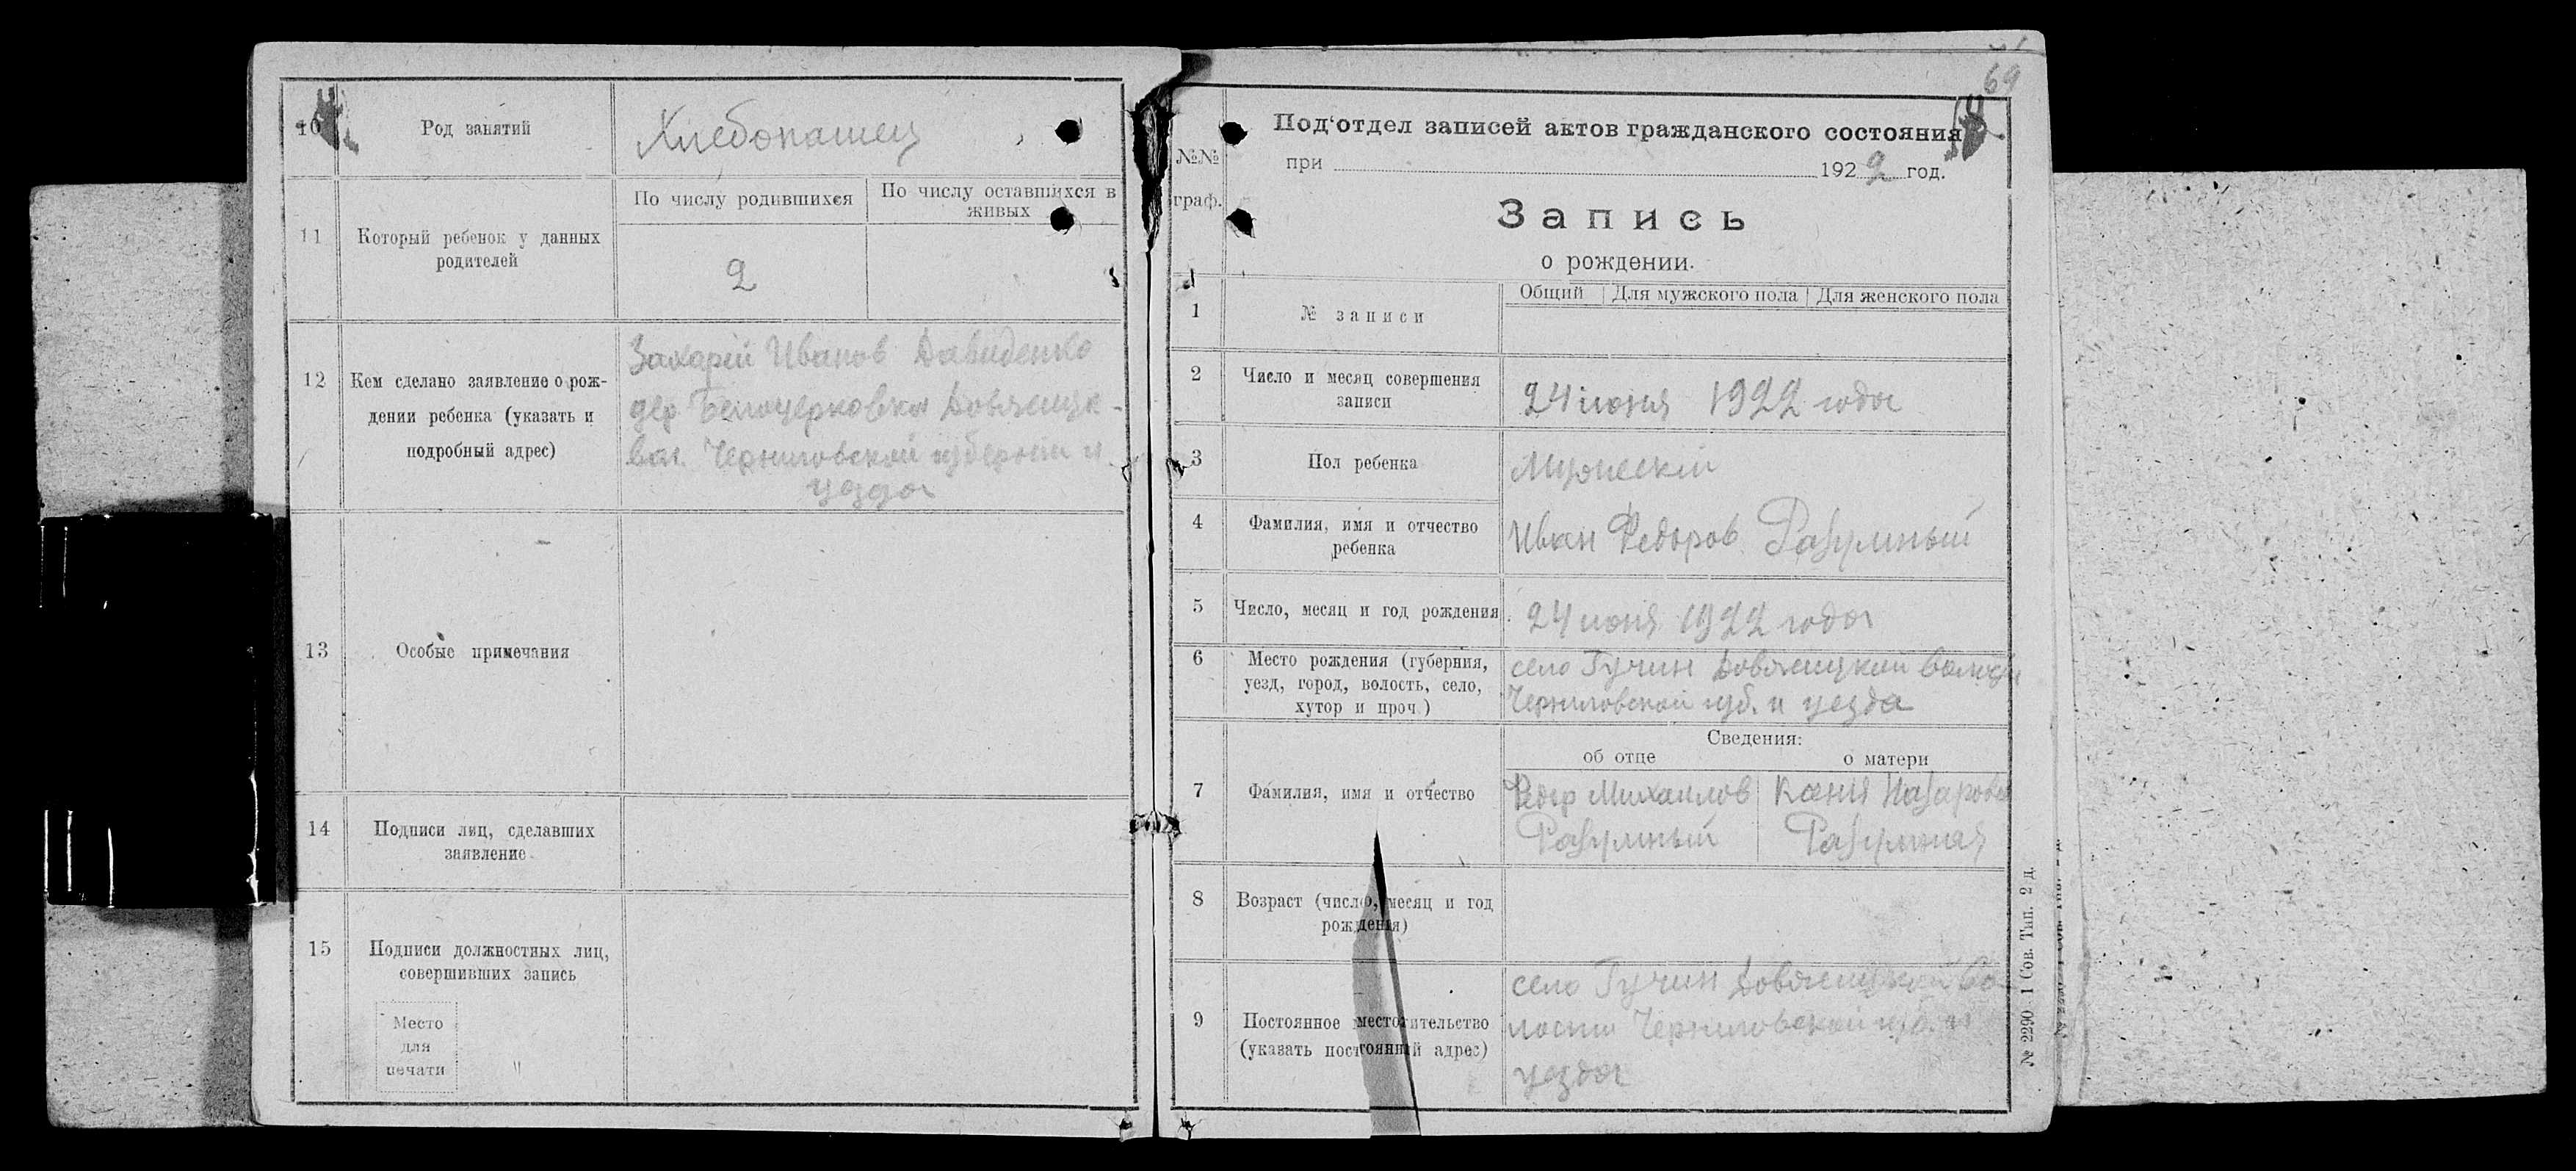 10
Род занятий
Хлебопашец
11
Который ребенок у данных
родителей
По числу родившихся
По числу оставшихся в
живых
2
12
Кем сделано заявление о рож-
дении ребенка (указать и
подробный адрес)
Захарій Иванов Давиденко
дер Белоцерковка Довжицк-
вол. Черниговской губернии и
уезда
13
Особые примечания
14
Подписи лиц, сделавших
заявление
15
Подписи должностных лиц,
совершивших запись
Место
для
печати
69
Под'отдел записей актов гражданского состояния
№№
граф.
при 1922 год.
Запись
о рождении.
Общий Для мужского пола Для женского пола
1
№ записи
2
Число и месяц совершения
записи
24 июня 1922 года
3
Пол ребенка
Мужескій
4
Фамилия, имя и отчество
ребенка
Иван Федоров Разумный
5
Число, месяц и год рождения
24 июня 1922 года
6
Место рождения (губерния,
уезд, город, волость, село,
хутор и проч.)
село Гучин Довжицкой волости
Черниговской губ. и уезда
Сведения:
об отце
о матери
7
Фамилия, имя и отчество
Федор Михайлов
Разумный
Ксения Назарова
Разумная
8
Возраст (число, месяц и год
рождения)
9
Постоянное местожительство
(указать постоянный адрес)
село Гучин Довжицкой во-
лости Черниговской губ. и
уезда
№ 2290. 1 Сов. Тип. 2 д.